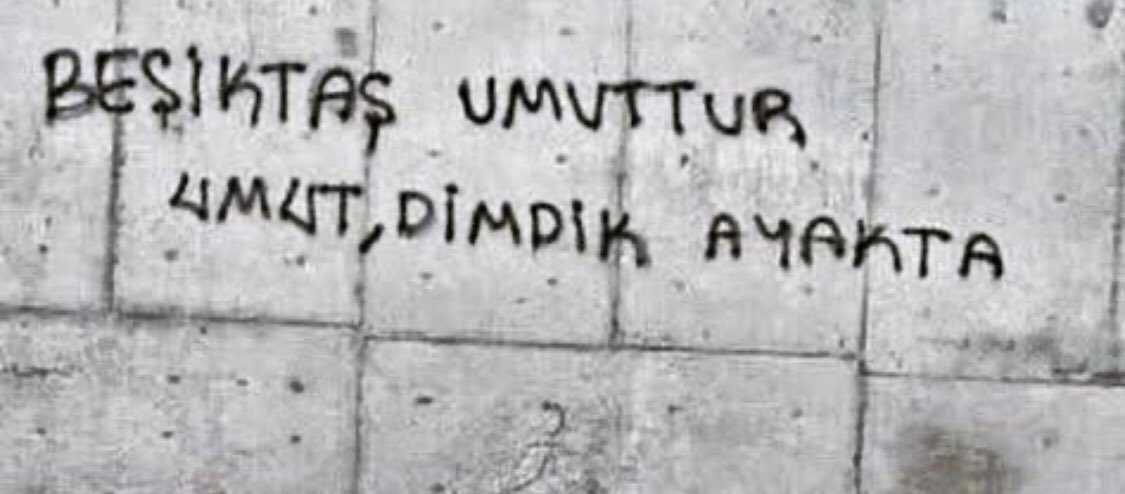 BEŞİKTAŞ UMUTTUR
UMUT, DİMDİK AYAKTA